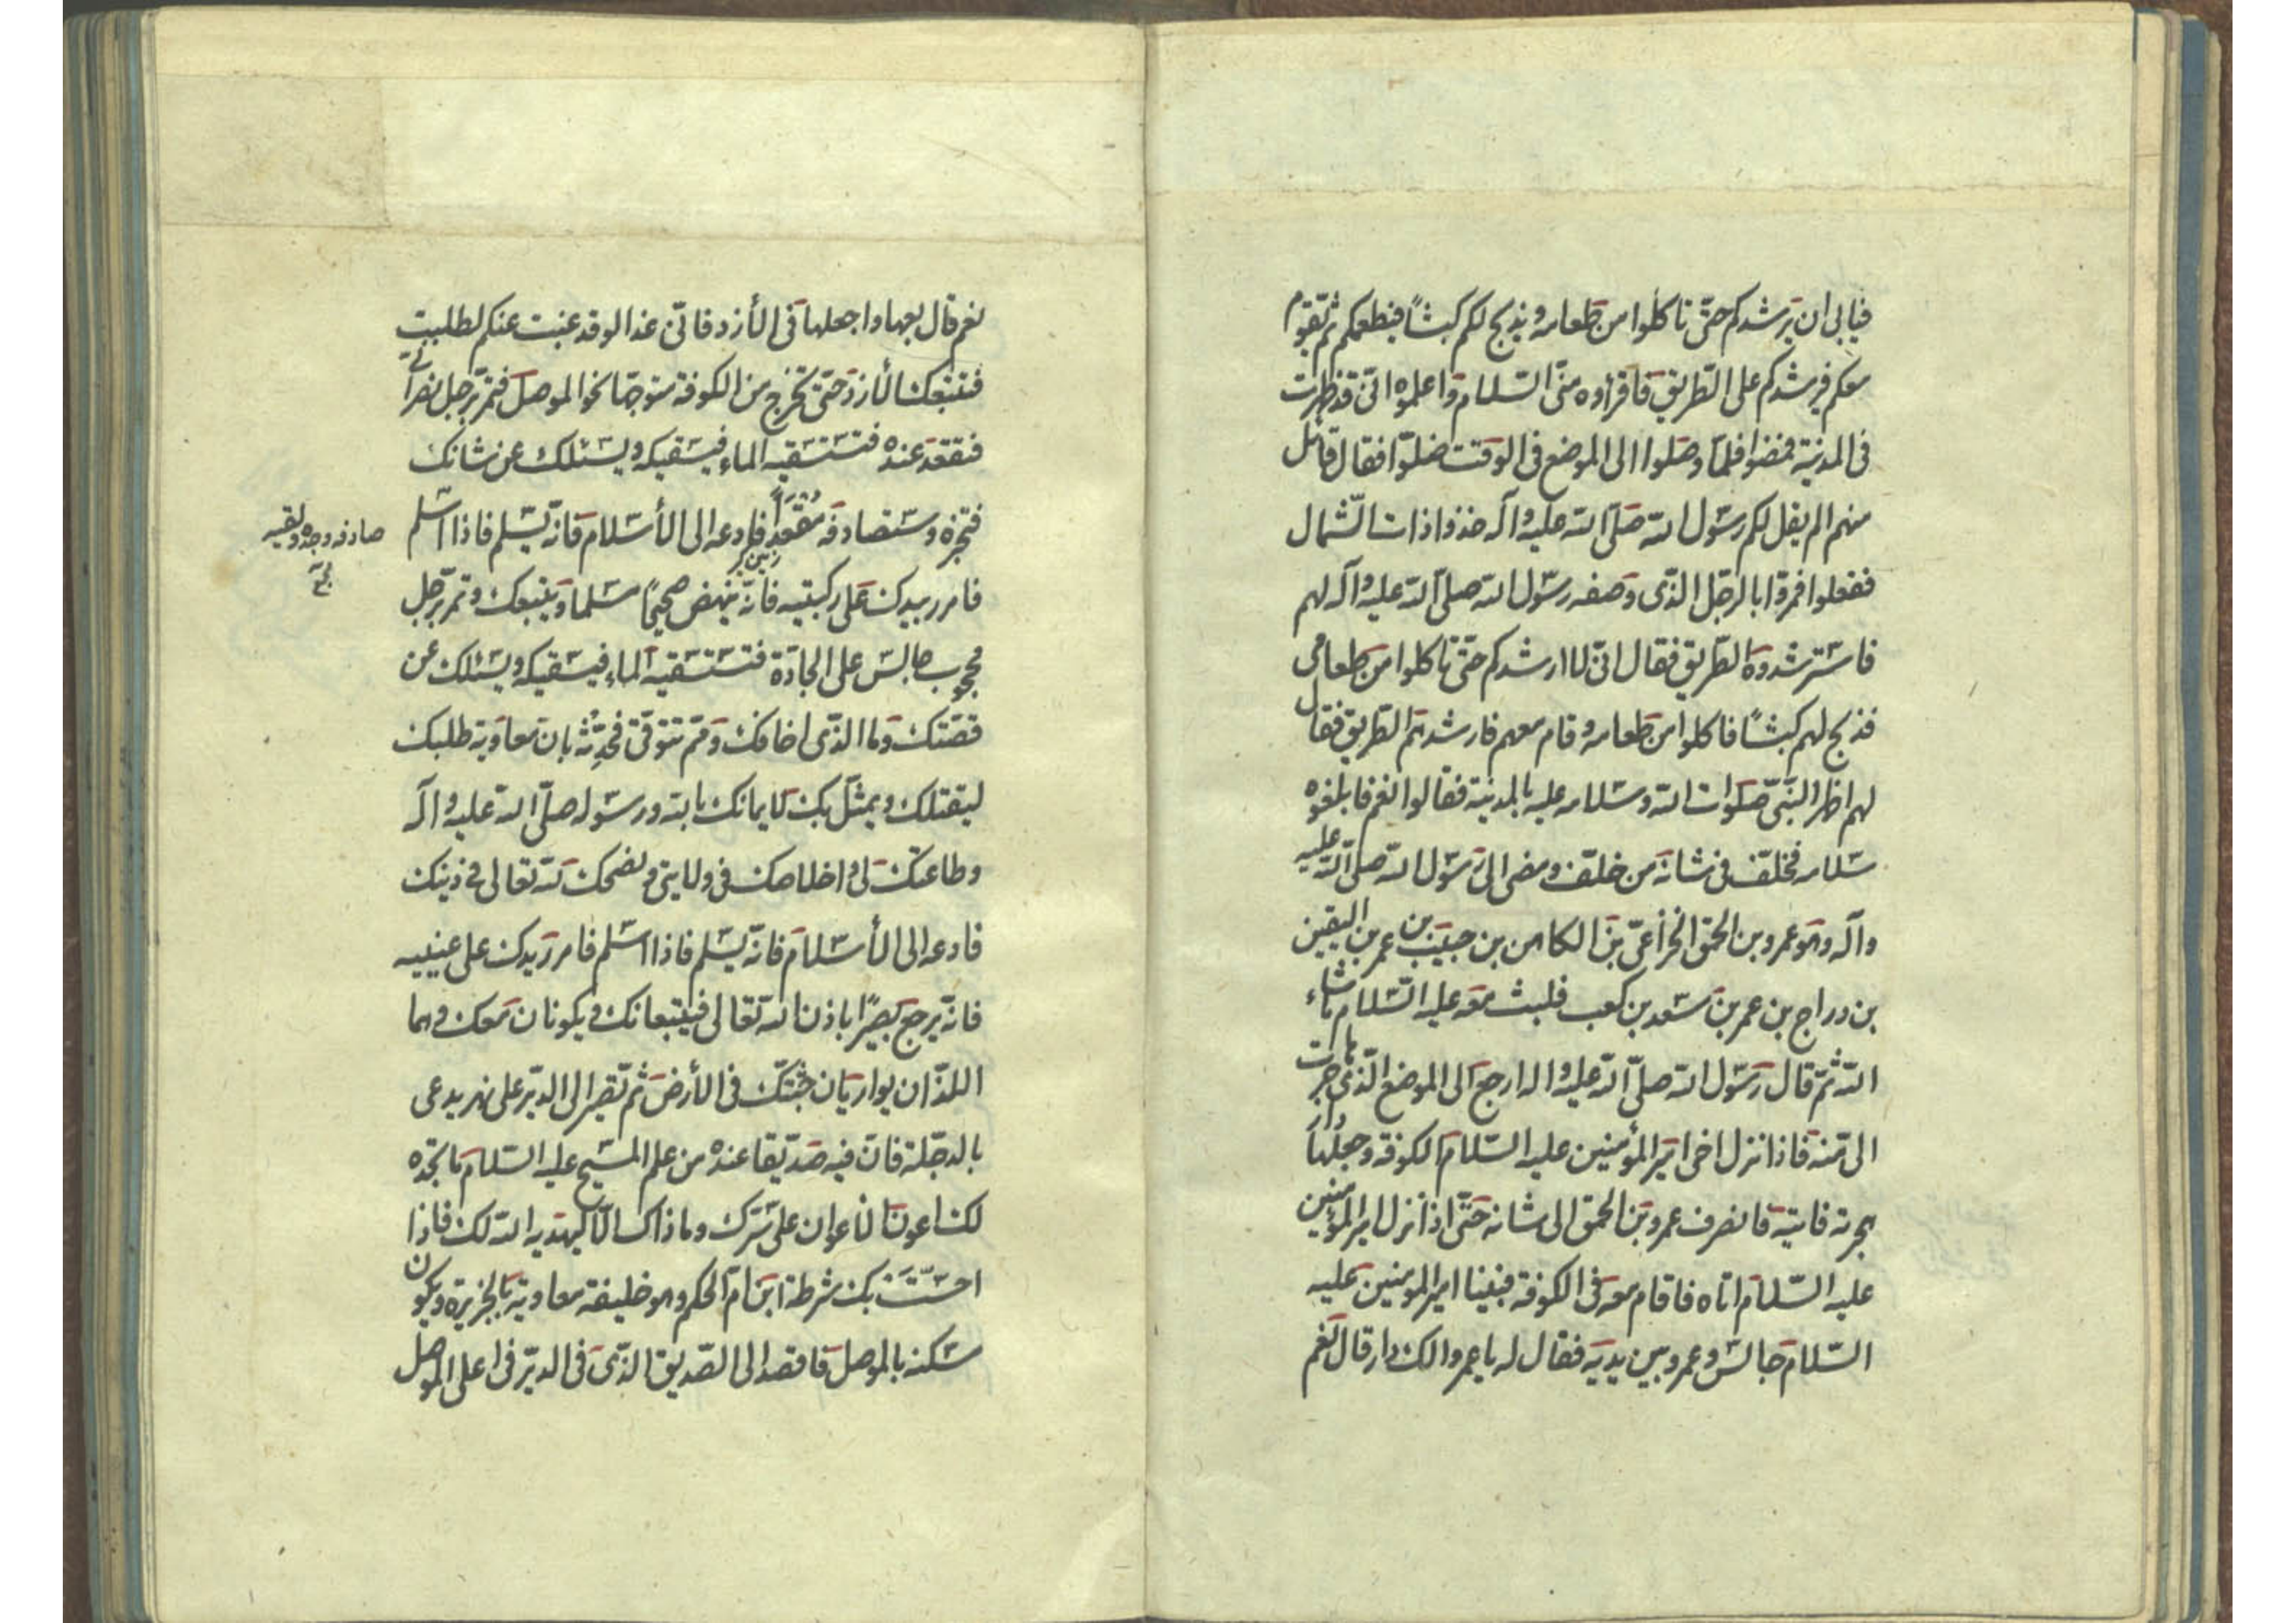 فيابى ان يرشدكم حتّى تاكلوا من طعامه ويذبح لكم كبشاً فيطعمكم ثمّ يقوم
معكم فيرشدكم على الطّريق فاقراوه منّى السّلام واعلموه انّى قد ظهرت
فى المدينة فمضوا فلمّا وصلوا الى الموضع فى الوقت ضلّوا فقال قائل
منهم الم يقل لكم رسول الله صلّى الله عليه وآله خذوا ذات الشّمال
ففعلوا فمرّوا بالرّجل الّذى وصفه رسول الله صلّى الله عليه وآله لهم
فاسترشدوه الطّريق فقال انّى لا ارشدكم حتّى تاكلوا من طعامى
فذبح لهم كبشاً فاكلوا من طعامه وقام معهم فارشدهم الطّريق فقال
لهم اظهر النّبىّ صلوات الله وسلامه عليه بالمدينة فقالوا نعم فابلغوه
سلامه فخلّف فى شانه من خلّف ومضى الى رسول الله صلّى الله عليه
وآله وهو عمرو بن الحمق الخزاعىّ بن الكاهن بن حبيب بن عمر بن اليقين
بن دراج بن عمر بن سعد بن كعب فلبث معه عليه السّلام ما شاء
الله ثمّ قال رسول الله صلّى الله عليه واله ارجع الى الموضع الّذى هاجرت
الىّ منه فاذا نزل اخى امير المؤمنين عليه السّلام الكوفة وجعلها دار
هجرته فاتيه فانصرف عمرو بن الحمق الى شانه حتّى اذا نزل امير المؤمنين
عليه السّلام اتاه فاقام معه فى الكوفة فبينا امير المومنين عليه
السّلام جالس وعمرو بين يديه فقال له يا عمرو الك دار قال نعم
نعم قال بعها واجعلها فى الأزد فانّى غدا لو قد غبت عنكم لطلبت
فتتبعك الأزد حتّى تخرج من الكوفة متوجّها نحو الموصل فتمرّ برجل نصرانىّ
فتقعد عنده فتستسقيه الماء فيسقيكه ويسئلك عن شانك
فتخبره وستصادفه مقعداً فادعه الى الأسلام فانّه يسلم فاذا اسلم
صادفه وجده ولقيه
فامرر بيدك على ركبتيه فانّه ينهض صحيحاً مسلما ويتبعك وتمرّ برجل
محجوب جالس على الجادّة فتستسقيه الماء فيسقيكه ويسئلك عن
قصّتك وما الّذى اخافك وممّ تتوقّى فحدّثه بان معاوية طلبك
ليقتلك ويمثّل بك لايمانك بالله ورسوله صلّى الله عليه وآله
وطاعتك لى واخلاصك فى ولايتى ونصحك لله تعالى فى دينك
فادعه الى الأسلام فانّه يسلم فاذا اسلم فامرر يدك على عينيه
فانّه يرجع بصيرا باذن الله تعالى فيتبعانك ويكونان معك وهما
اللّذان يواريان جثّتك فى الأرض ثمّ تصير الى الدّير على نهر يدعى
بالدجلة فان فيه صدّيقا عنده من علم المسيح عليه السّلام ما تجده
لك اعون الأعوان على سرّك وما ذاك الّا ليهديه الله لك فاذا
احسّت بك شرطة ابن امّ الحكم وهو خليفة معاوية بالجزيرة ويكون
مسكنه بالموصل فاقصد الى الصّديق الذّى فى الدّير فى اعلى الموصل